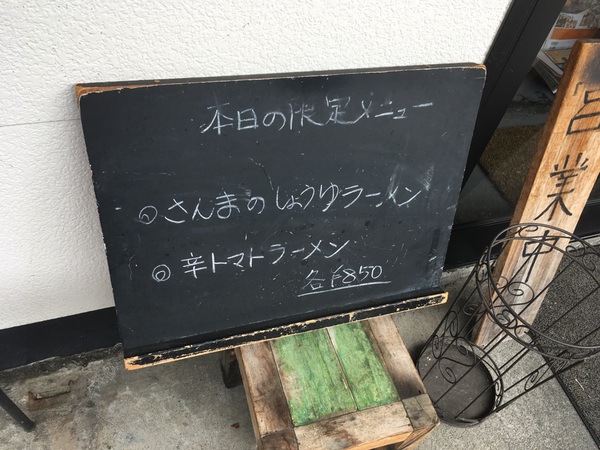 本日の限定メニュー
◎さんまのしょうゆラーメン
◎辛トマトラーメン
各¥850
営業中